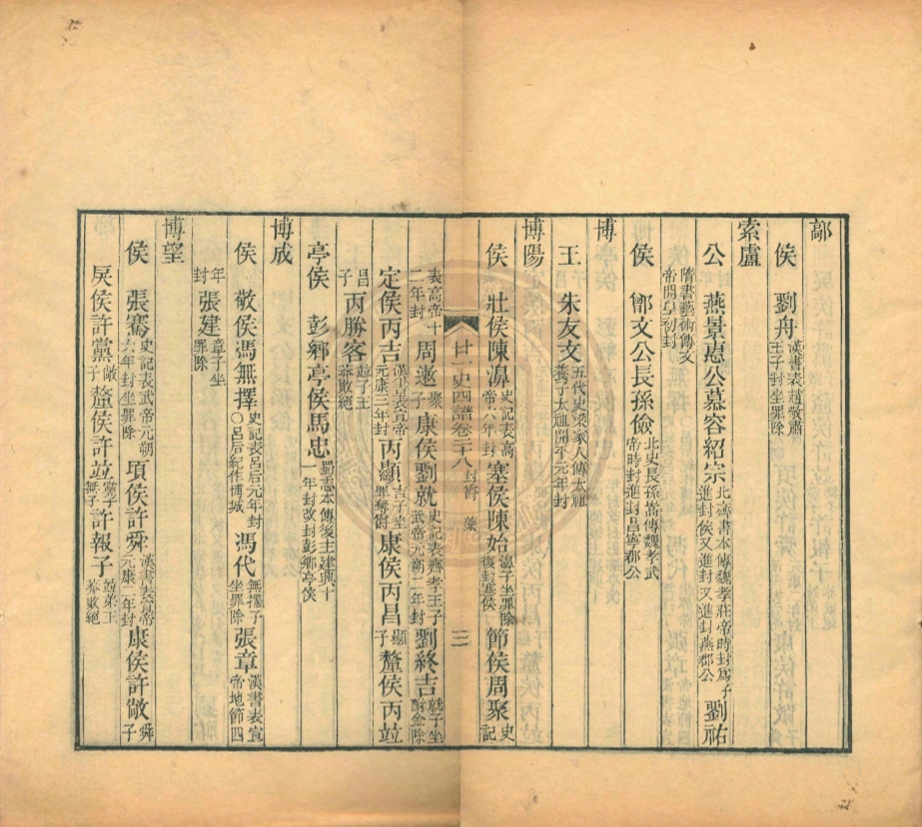 鄗
侯 劉舟 漢書表趙敬肅王子封坐罪除
索盧
公 燕景惠公慕容紹宗 北齊書本傳魏孝莊帝時封爲子進封侯又進封又進封燕郡公 劉祐
隋書藝術傳文帝開皇初封
侯 鄫文公長孫儉 北史長孫嵩傳魏孝武帝時封進封昌寧郡公
博
王 朱友文 五代史梁家人傳太祖養子太祖開平元年封
博陽
侯 壯侯陳濞 史記表高帝六年封 塞侯陳始 濞子坐罪除復封塞侯 節侯周聚 史記
表高帝十二年封 周遬 聚子 康侯劉就 史記表齊孝王子武帝元朔二年封 劉終吉 就子坐酎金除
廿一史四譜卷二十八 封爵 藥 三
定侯丙吉 漢書表宣帝元康三年封 丙顯 吉子坐罪奪爵 康侯丙昌 顯子 釐侯丙竝
昌子 丙勝客 竝子王莽敗絕
亭侯 彭鄉亭侯馬忠 蜀志本傳後主建興十一年封改封彭鄉亭侯
博成
侯 敬侯馮無擇 史記表呂后元年封○呂后紀作博城 馮代 無擇子坐罪除 張章 漢書表宣帝地節四
年封 張建 章子坐罪除
博望
侯 張騫 史記表武帝元朔六年封坐罪除 項侯許舜 漢書表宣帝元康二年封 康侯許敞 舜子
戾侯許黨 敞子 釐侯許竝 黨子無子 許報子 竝弟王莽敗絕